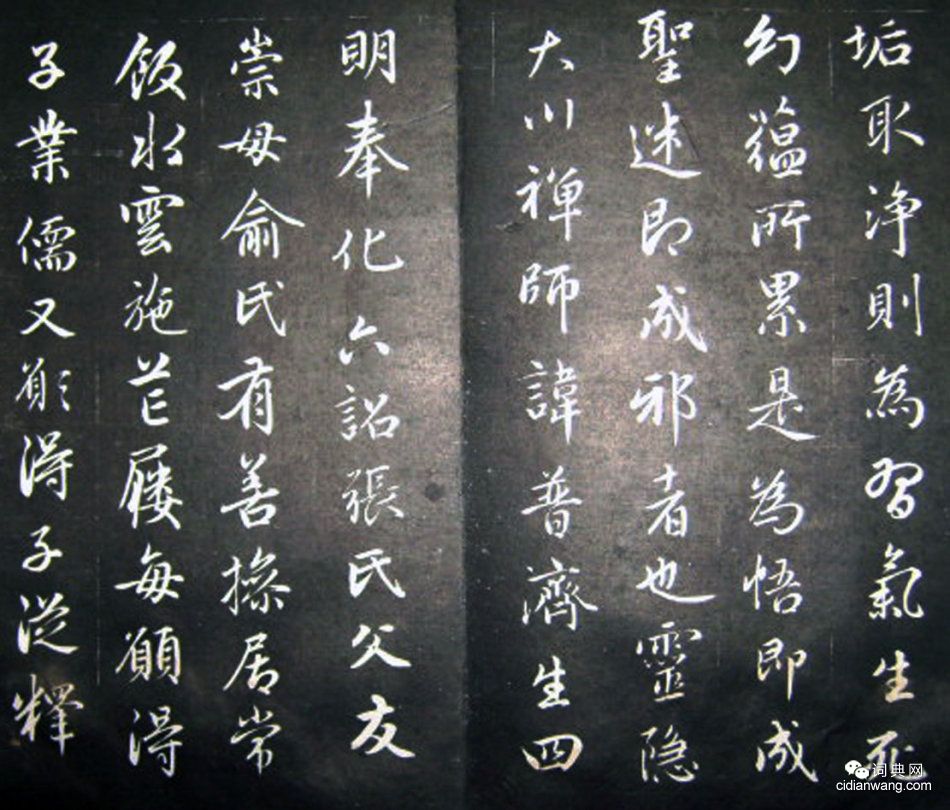 垢取淨則為習氣生死
幻蘊所累是為悟即成
聖迷即成邪者也靈隐
大川禅師諱普濟生四
明奉化六詔張氏父友
崇母俞氏有善操居常
飯水雲施芒屨每願得
子業儒又願得子從釋
词典网
cidianwang.com